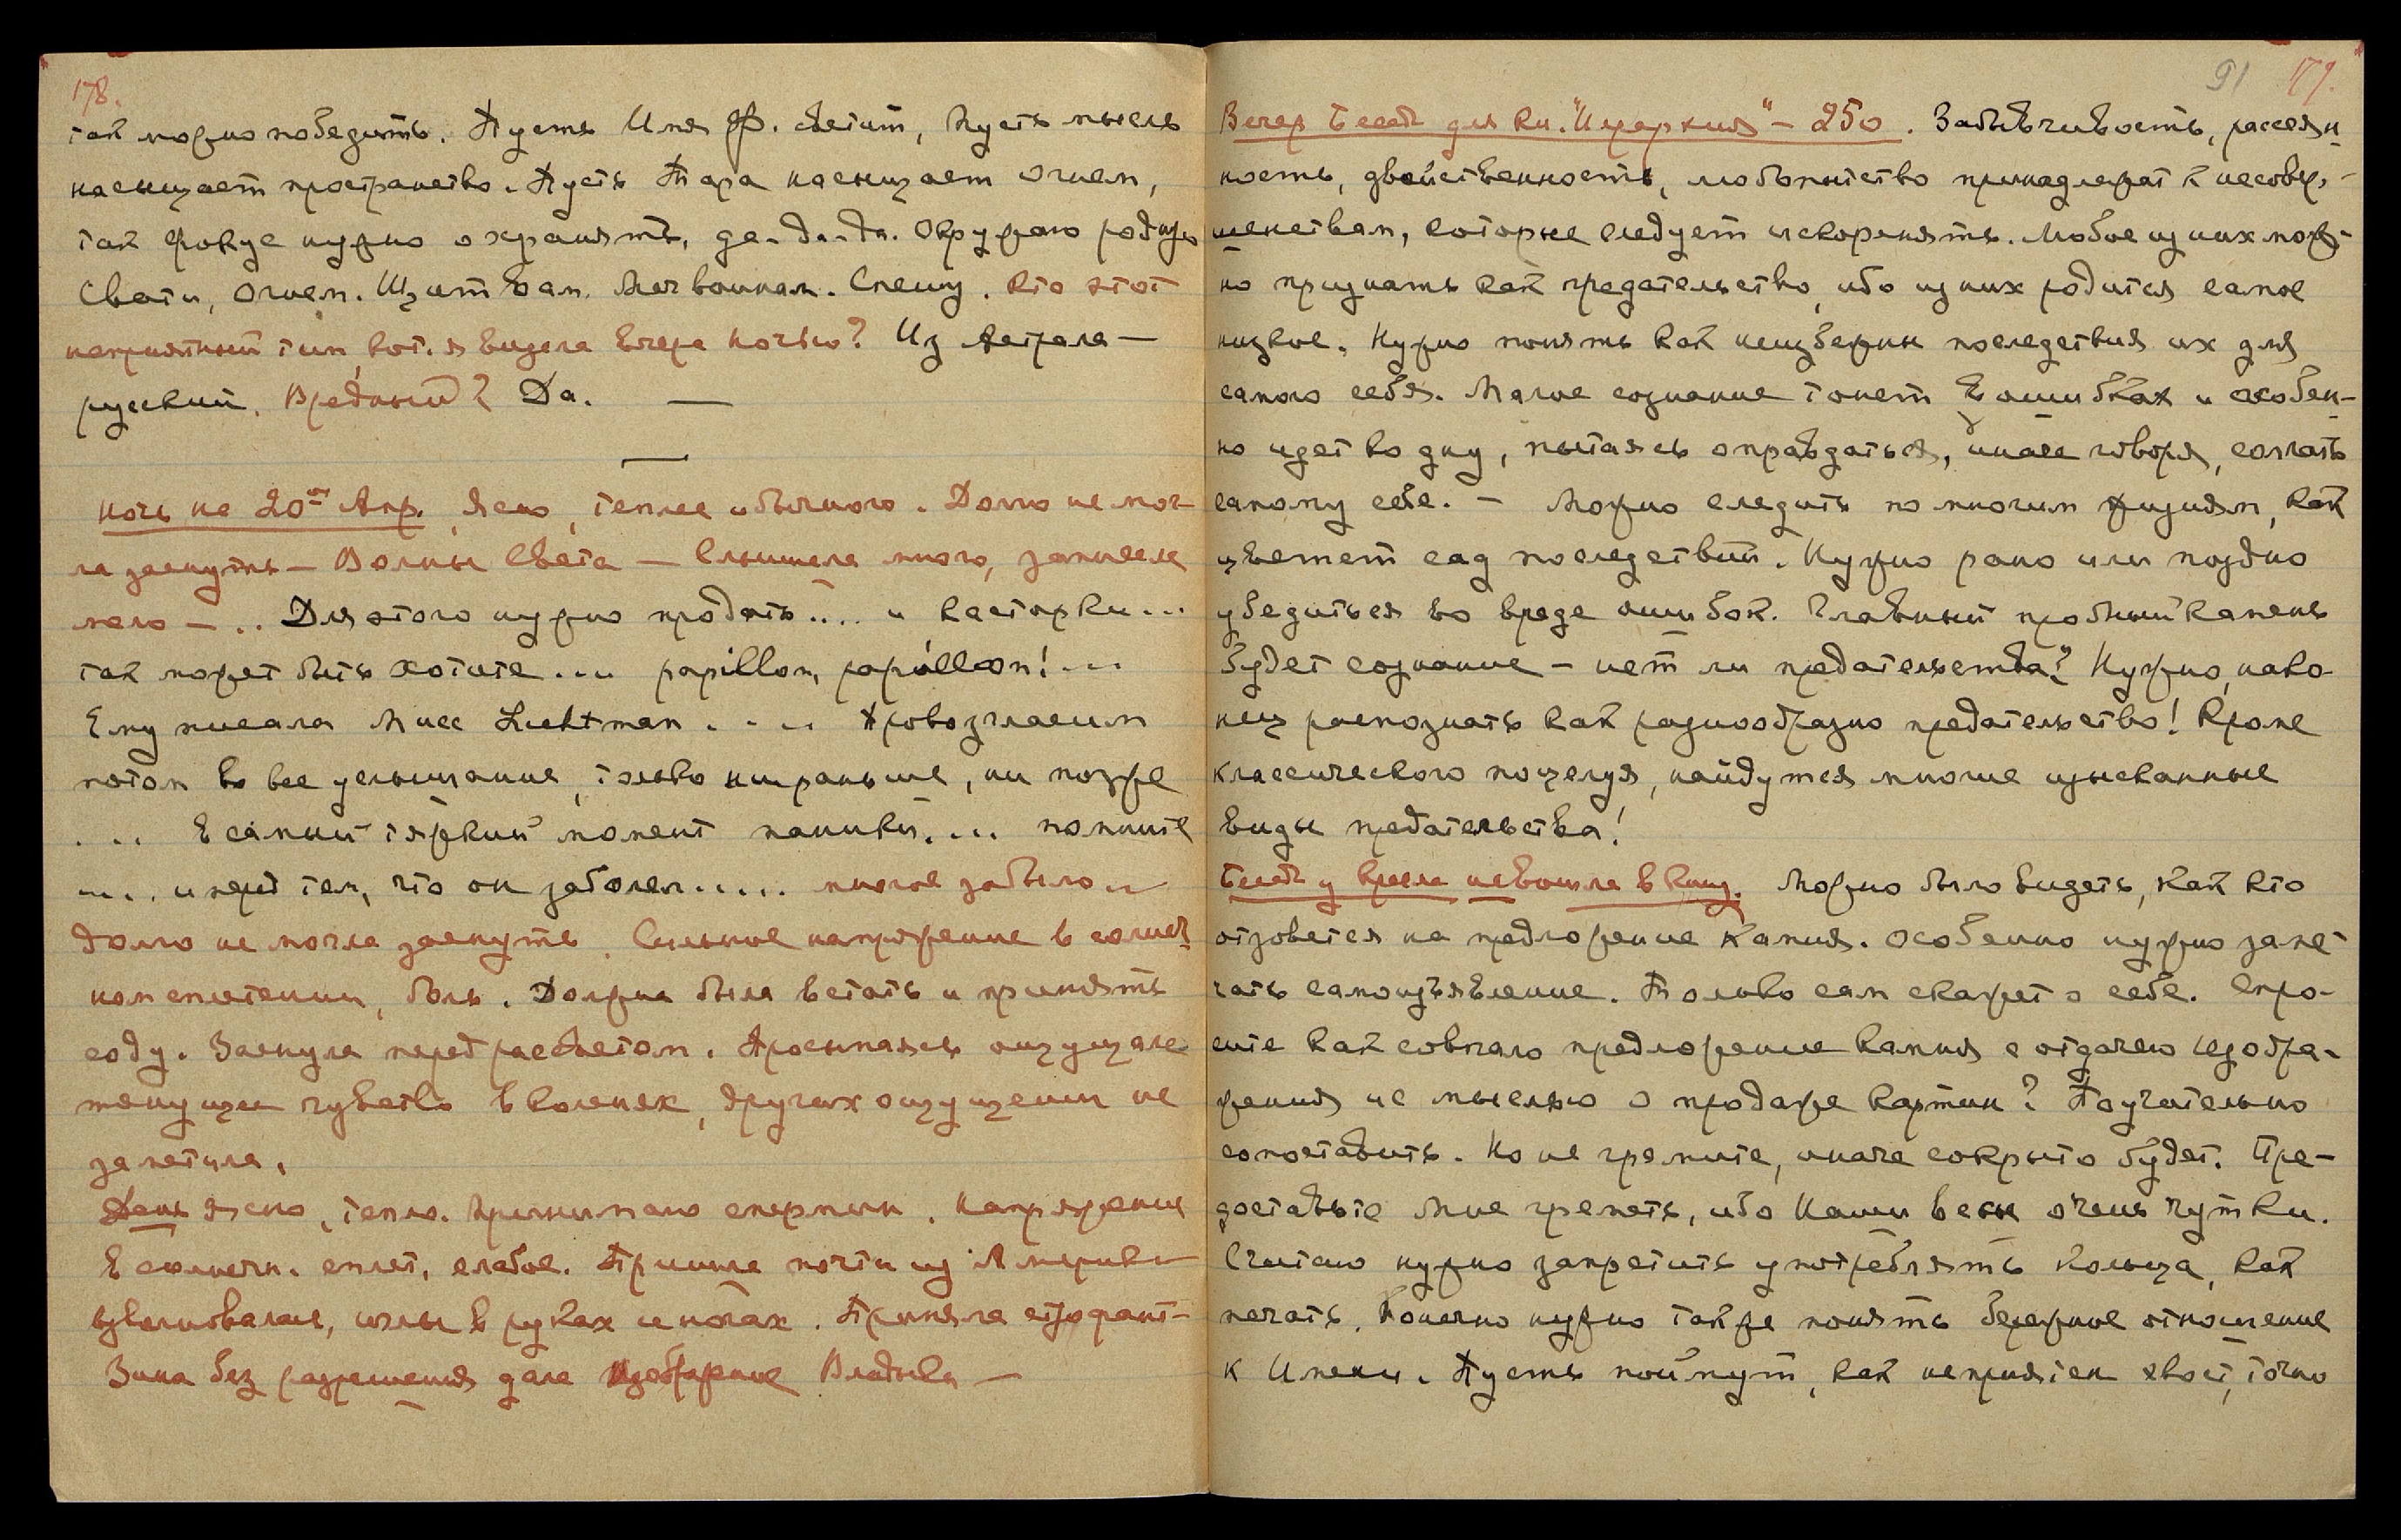 178.
так можно победить. Пусть Имя Ф. светит, Пусть мысль
насыщает пространство. Пусть Тара насыщает огнем,
так фокус нужно охранять, да-да-да. Окружаю родную
Свати, огнем. Щит Вам. Меч воинам. Спешу. Кто этот
неприятный тип, кот. я видела вчера ночью? Из Астрала —
русский. Вредный? Да. —
Ночь на 20ое Апр. Ясно, теплее обычного. Долго не мог-
ла заснуть — Волны Света — Слышала много, записала
мало — .. Для этого нужно продать .... и касторки ...
так может быть хотите ... papillon, papillon! ...
Ему писала Мисс Lichtman .... Провозгласим
потом во все услышание, только ни раньше, ни позже
... В самый тяжкий момент паники .... помните
.... и перед тем, что он заболел ..... многое забыла ..
Долго не могла заснуть. Сильное напряжение в солнеч-
ном сплетении, боль. Должна была встать и принять
соду. Заснула перед рассветом. Просыпаясь ощущала
тянущее чувство в коленях, других ощущений не
заметила.
День Ясно, тепло. Принимаю спермин. Напряжение
в солнечн. сплет. слабое. Пришла почта из Америки
взволновалась, иглы в руках и ногах. Приняла строфант-
Зина без разрешения дала Изображение Владыки —
91 179.
Вечер Бесед. для кн. "Иерархия" – 250. Забывчивость, рассеян-
ность, двойственность, любопытство принадлежат к несовер-
шенствам, которые следует искоренять. Любое из них мож-
но признать как предательство, ибо из них родится самое
низкое. Нужно понять как неизбежны последствия их для
самого себя. Малое сознание тонет в ошибках и особен-
но идет ко дну, пытаясь оправдаться, иначе говоря, солгать
самому себе. – Можно следить по многим жизням, как
цветет сад последствий. Нужно рано или поздно
убедиться во вреде ошибок. Главный пробный камень
будет сознание – нет ли предательства? Нужно, нако-
нец распознать как разнообразно предательство! Кроме
классического поцелуя, найдутся многие изысканные
виды предательства!
Бесед. у кресла не вошла в книг. Можно было видеть, как кто
отзовется на предложение Камня. Особенно нужно заме-
чать самоизъявление. Только сам скажет о себе. Спро-
сите как совпало предложение камня с отдачею изобра-
жения и с мыслью о продаже картин? Поучительно
сопоставить. Но не гремите, иначе сокрыто будет. Пре-
доставьте Мне греметь, ибо Наши весы очень чутки.
Считаю нужно запретить употреблять кольца, как
печать. Конечно нужно также понять бережное отношение
к Имени. Пусть поймут, как неприятен хвост, точно